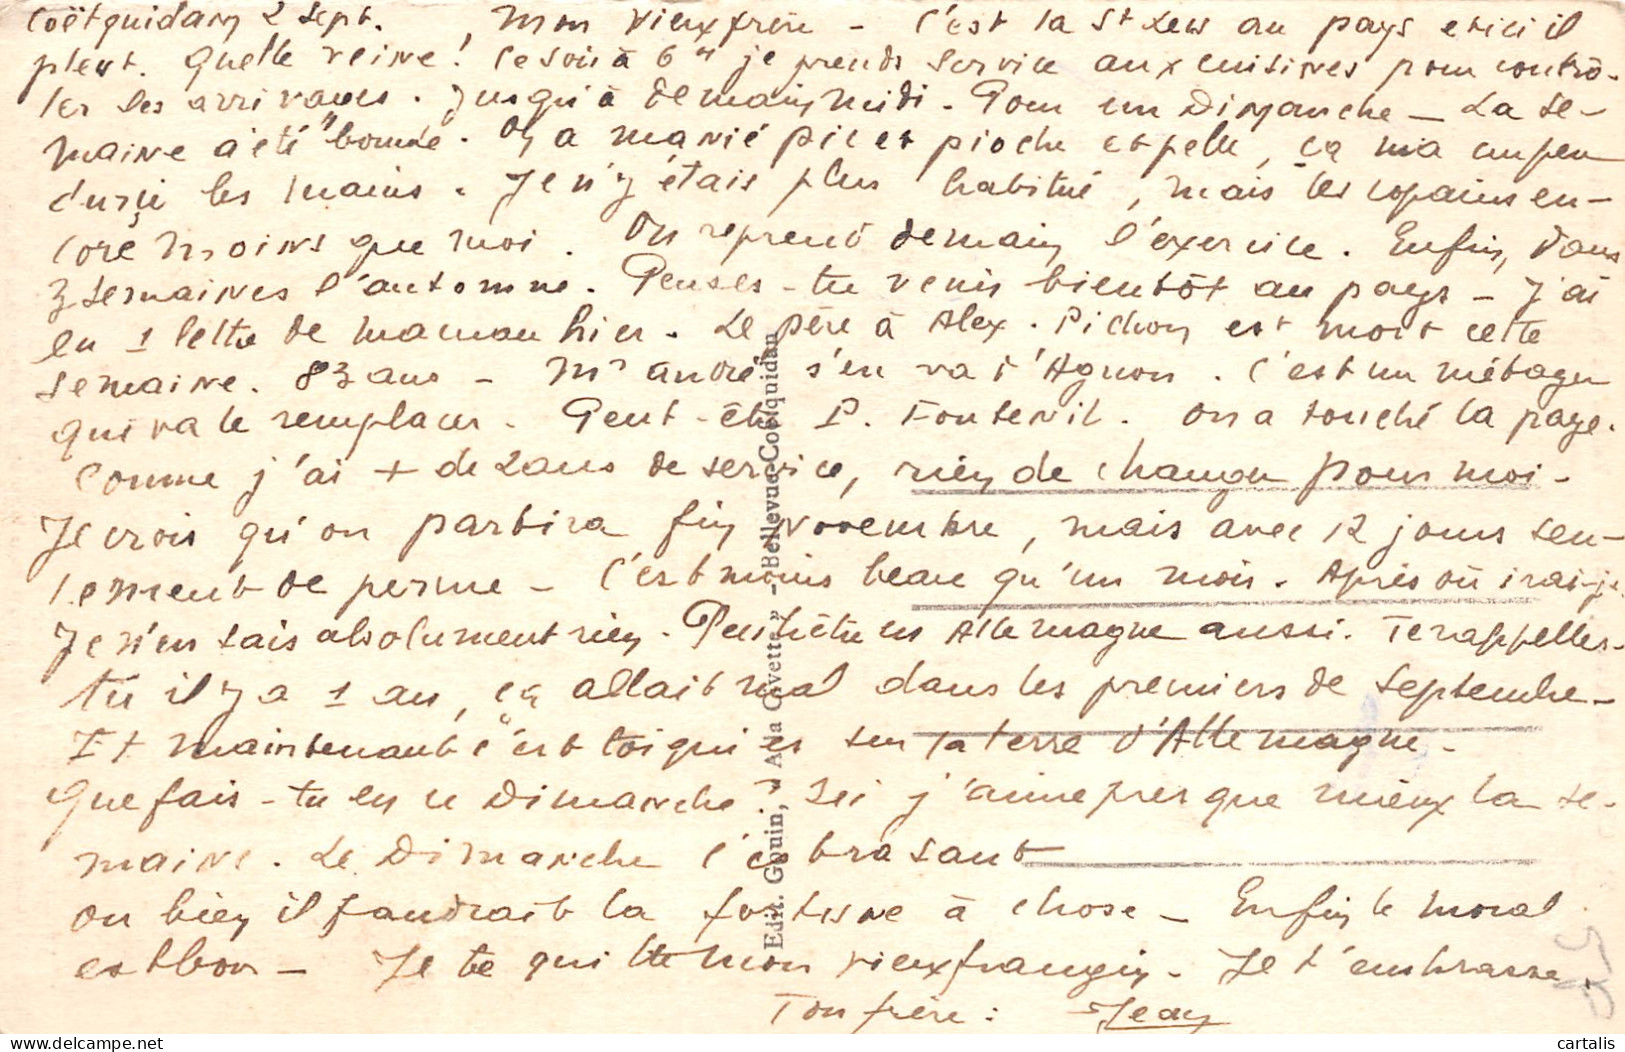 Coëtquidan 2 sept. , Mon vieux frère - C'est la St Leu au pays et ici il
pleut. Quelle veine ! Ce soir à 6h je prends service aux cuisines pour contrô-
ler les arrivages. Jusqu'à demain midi. Pour un Dimanche - La se-
maine a été "bonne. On a manié pic et pioche et pelle, ça m'a un peu
durçi les mains. Je n'y étais plus habitué, mais les copains en-
core moins que moi. On reprend demain l'exercice. Enfin, dans
3 semaines l'automne. Penses-tu venir bientôt au pays - J'ai
eu 1 lettre de maman hier. Le père à Alex. Pichon est mort cette
semaine. 83 ans - Mr André s'en va d'Agnon. C'est un métayer
qui va le remplacer. Peut-être P. Fontenil. On a touché la paye.
Comme j'ai + de 2 ans de service, rien de changer pour moi -
Je crois qu'on partira fin novembre, mais avec 12 jours seu-
lement de perme - C'est moins beau qu'un mois. Après où irai-je
Je n'en sais absolument rien. Peut-être en Allemagne aussi. Te rappelles-
tu il y a 1 an, ça allait mal dans les premiers de septembre -
Et maintenant c'est toi qui es sur la terre d'Allemagne -
Que fais-tu en ce Dimanche ? Ici j'aime presque mieux la se-
maine. Le Dimanche c'est rasant
ou bien il faudrait la fortune à chose - Enfin le moral
est bon - Je te quitte mon vieux frangin - Je t'embrasse
Ton frère : Jean
Edit. Gouin, « A la Civette » - Bellevue-Coëtquidan
cartalis